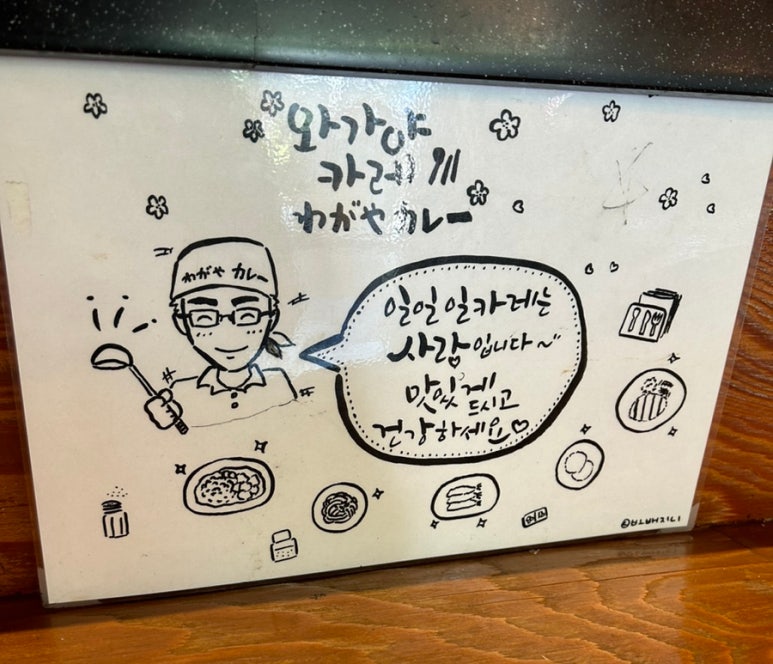 와가야
카레
わがや カレー
わがや カレー
일일일카레는
사랑입니다~
맛있게
드시고
건강하세요♡